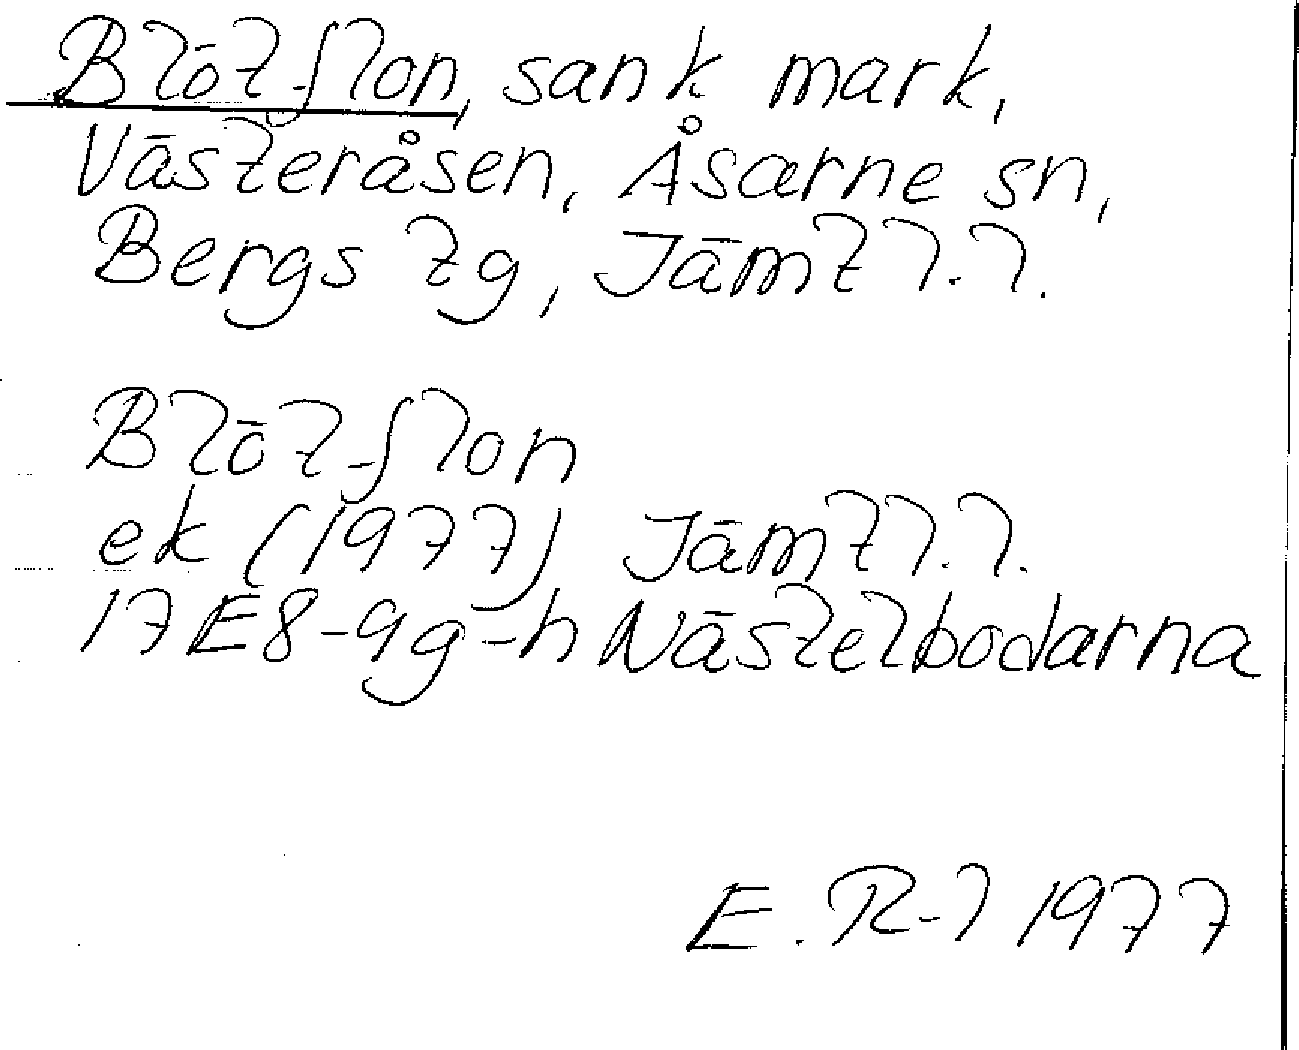 Blöt-flon, sank mark,
Västeråsen, Åsarne sn,
Bergs tg, Jämtl.l.
Blöt-flon
ek (1977) Jämtl.l.
17E8-9g-h Nästelbodarna
E. R-l 1977